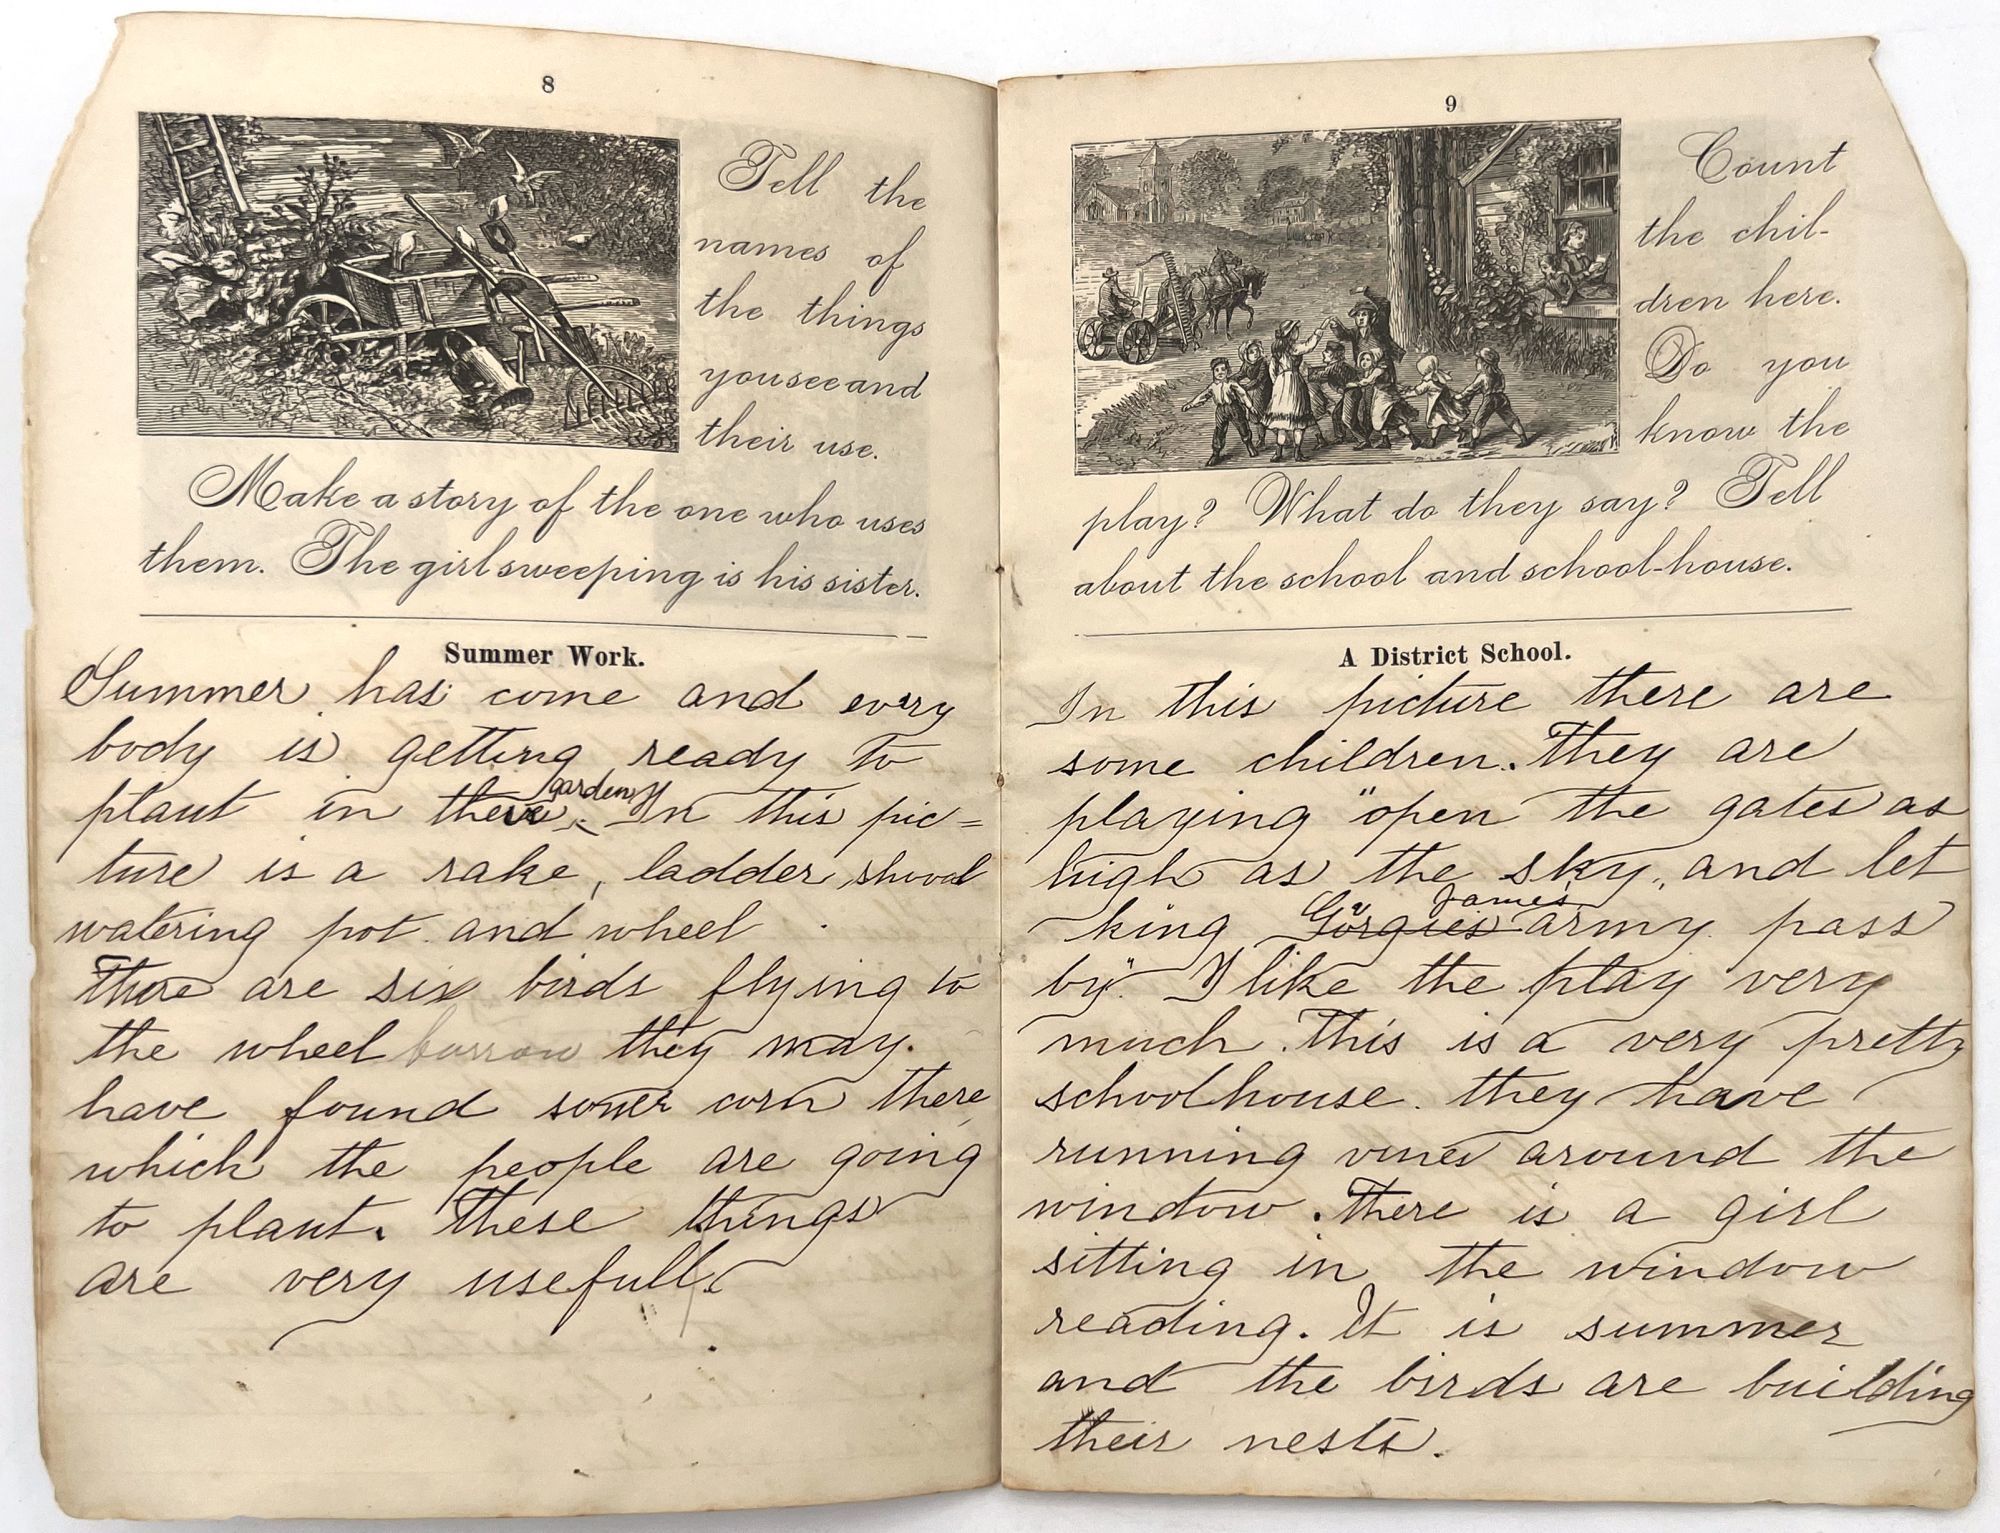 8
Tell the
names of
the things
you see and
their use.
Make a story of the one who uses
them. The girl sweeping is his sister.
Summer Work.
Summer has come and every
body is getting ready to
plant in there garden In this pic=
ture is a rake, ladder shoval
watering pot and wheel
There are six birds flying to
the wheel barrow they may.
have found some corn there
which the people are going
to plant. These things
are very usefull.
9
Count
the chil-
dren here.
Do you
know the
play? What do they say? Tell
about the school and school-house.
A District School.
In this picture there are
some children. They are
playing "open the gates as
high as the sky, and let
James
king Gorgies army pass
by" I like the play very
much. This is a very pretty
schoolhouse. they have
running vines around the
window. There is a girl
sitting in the window
reading. It is summer
and the birds are building
their nests.